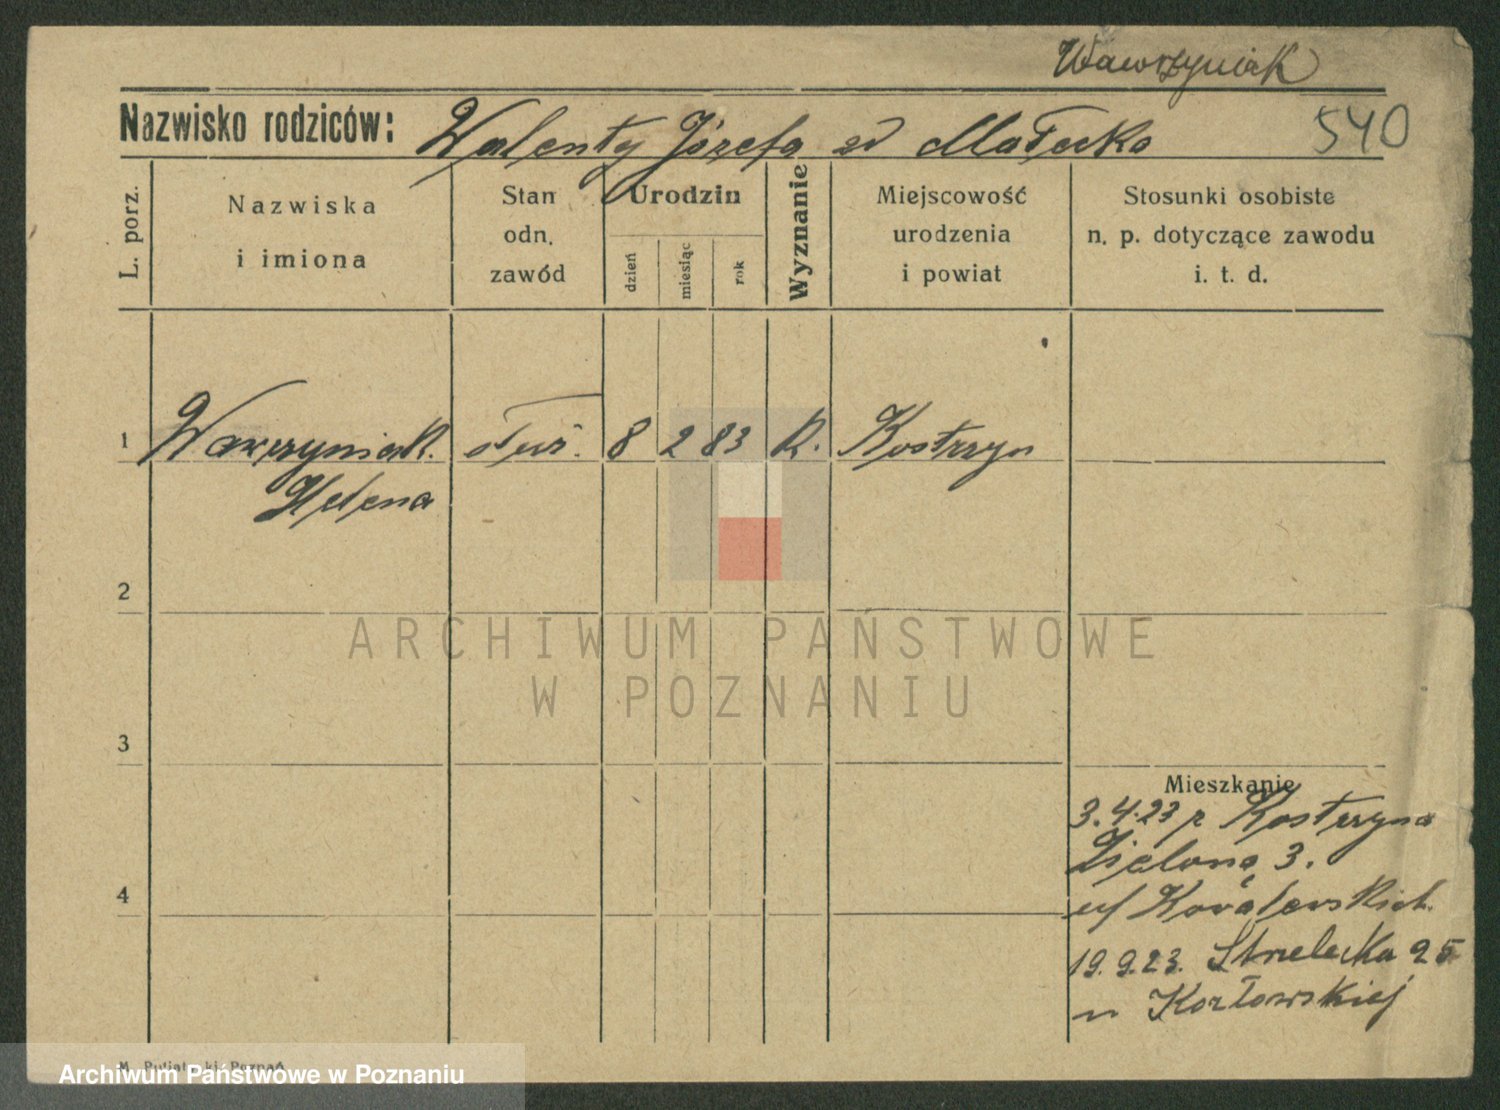 Wawrzyniak
Nazwisko rodziców: Walenty Józefa zd Małecka 540
L. porz.
Nazwiska
i imiona
Stan
odn.
zawód
Urodzin
dzień
miesiąc
rok
Wyznanie
Miejscowość
urodzenia
i powiat
Stosunki osobiste
n. p. dotyczące zawodu
i. t. d.
1 Wawrzyniak służ. 8 2 83 k. Kostrzyn
Helena
2
ARCHIWUM PAŃSTWOWE
W POZNANIU
3
Mieszkanie
3.4.23 z Kostrzyna
Zielona 3.
4
19.9.23. Strzelecka 25
u Kozłowskiej
Poznań
Archiwum Państwowe w Poznaniu